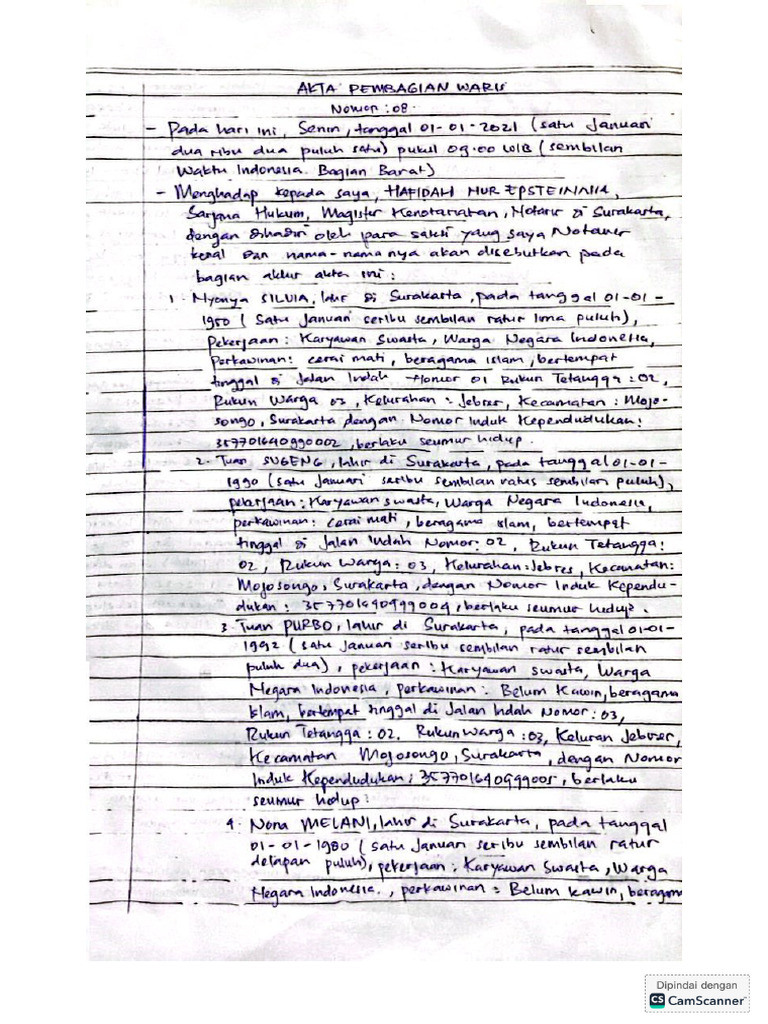 AKTA PEMBAGIAN WARIS
Nomor : 08.
- Pada hari ini, Senin, tanggal 01-01-2021 (satu Januari
dua ribu dua puluh satu) pukul 09.00 WIB (sembilan
Waktu Indonesia Bagian Barat)
- Menghadap kepada saya, HAFIDAH NUR
Sarjana Hukum, Magister Kenotariatan, Notaris di Surakarta,
dengan dihadiri oleh para saksi yang saya Notaris
kenal dan nama-nama nya akan disebutkan pada
bagian akhir akta ini :
1. Nyonya SILVIA, lahir di Surakarta, pada tanggal 01-01-
1950 ( Satu Januari seribu sembilan ratus lima puluh),
Pekerjaan : Karyawan Swasta, Warga Negara Indonesia,
Perkawinan : cerai mati, beragama islam, bertempat
tinggal di Jalan Indah Nomor 01 Rukun Tetangga : 02,
Rukun Warga 03, Kelurahan : Jebres, Kecamatan : Mojo-
songo, Surakarta dengan Nomor Induk Kependudukan :
357701640990002, berlaku seumur hidup.
2. Tuan SUGENG, lahir di Surakarta, pada tanggal 01-01-
1990 (satu Januari seribu sembilan ratus sembilan puluh),
pekerjaan : Karyawan swasta, Warga Negara Indonesia,
perkawinan : cerai mati, beragama Islam, bertempat
tinggal di Jalan Indah Nomor : 02, Rukun Tetangga :
02, Rukun Warga : 03, Kelurahan : Jebres, Kecamatan :
Mojosongo, Surakarta, dengan Nomor Induk Kependu-
dukan : 357701690999004, berlaku seumur hidup.
3. Tuan PURBO, lahir di Surakarta, pada tanggal 01-01-
1992 ( satu Januari seribu sembilan ratus sembilan
puluh dua), pekerjaan : Karyawan swasta, Warga
Negara Indonesia, perkawinan : Belum Kawin, beragama
Islam, bertempat tinggal di Jalan Indah Nomor : 03,
Rukun Tetangga : 02, Rukun Warga : 03, Keluran Jebres,
Kecamatan Mojosongo, Surakarta, dengan Nomor
Induk Kependudukan : 357701640999005, berlaku
seumur hidup.
4. Nona MELANI, lahir di Surakarta, pada tanggal
01-01-1980 ( satu Januari seribu sembilan ratus
delapan puluh), pekerjaan : Karyawan Swasta, Warga
Negara Indonesia., perkawinan : Belum Kawin, beragama
Dipindai dengan
CS CamScanner